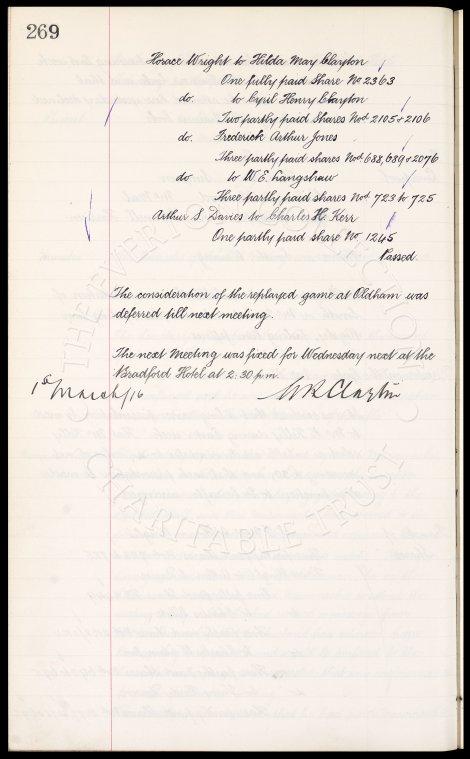 269
Horace Wright to Hilda May Clayton
One fully paid Share No 2363
do. to Cyril Henry Clayton
Two partly paid Shares Nos 2105 & 2106
do. Frederick Arthur Jones
Three partly paid shares Nos 688, 689 & 2076
do to W. E. Langshaw
Three partly paid shares Nos 723 to 725
Arthur S Davies to Charles H. Kerr
One partly paid share No 1245
Passed.
The consideration of the replayed game at Oldham was
deferred till next meeting.
The next Meeting was fixed for Wednesday next at the
Bradford Hotel at 2:30 p.m.
1st March/16
W R Clayton
THE EVERTON COLLECTION
CHARITABLE TRUST